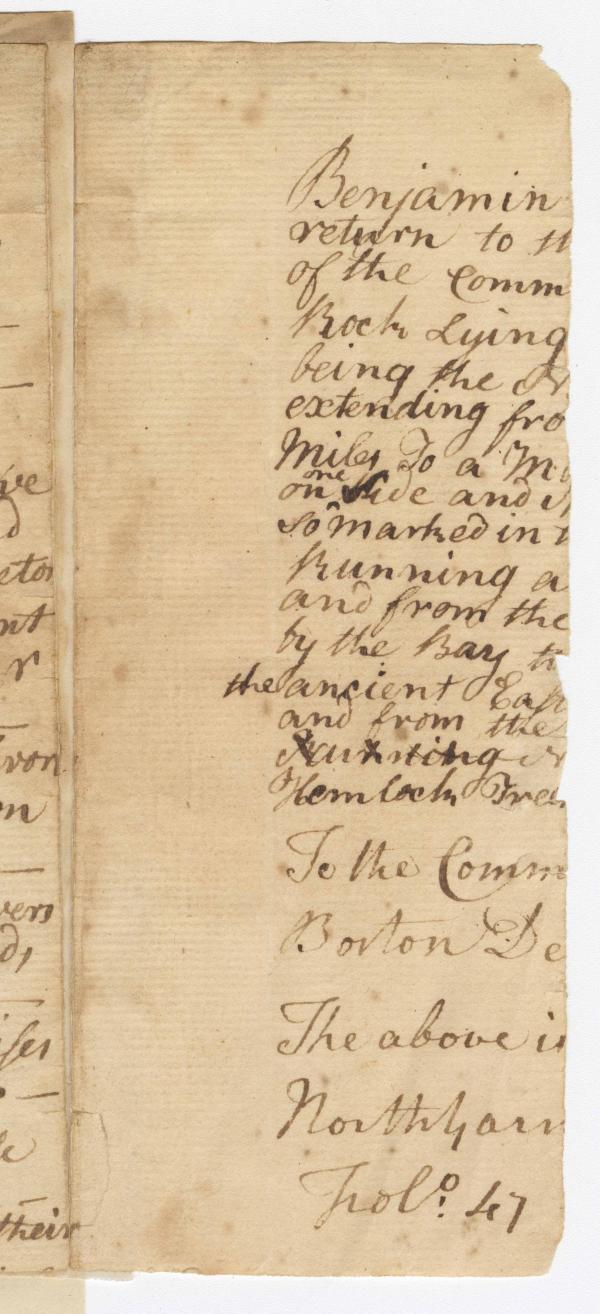 ve
d
etor
nt
r
ron
m
vers
d,
ises
le
their
Benjamin
return to th
of the Comm
Rock Lying
being the N
extending fro
Miles To a M
one
on Side and
so marked in
Running a
and from the
by the Bay t
the ancient East
and from the
Running N
Hemlock Tree
To the Comm
Boston De
The above is
Northyarm
Fol.º 47